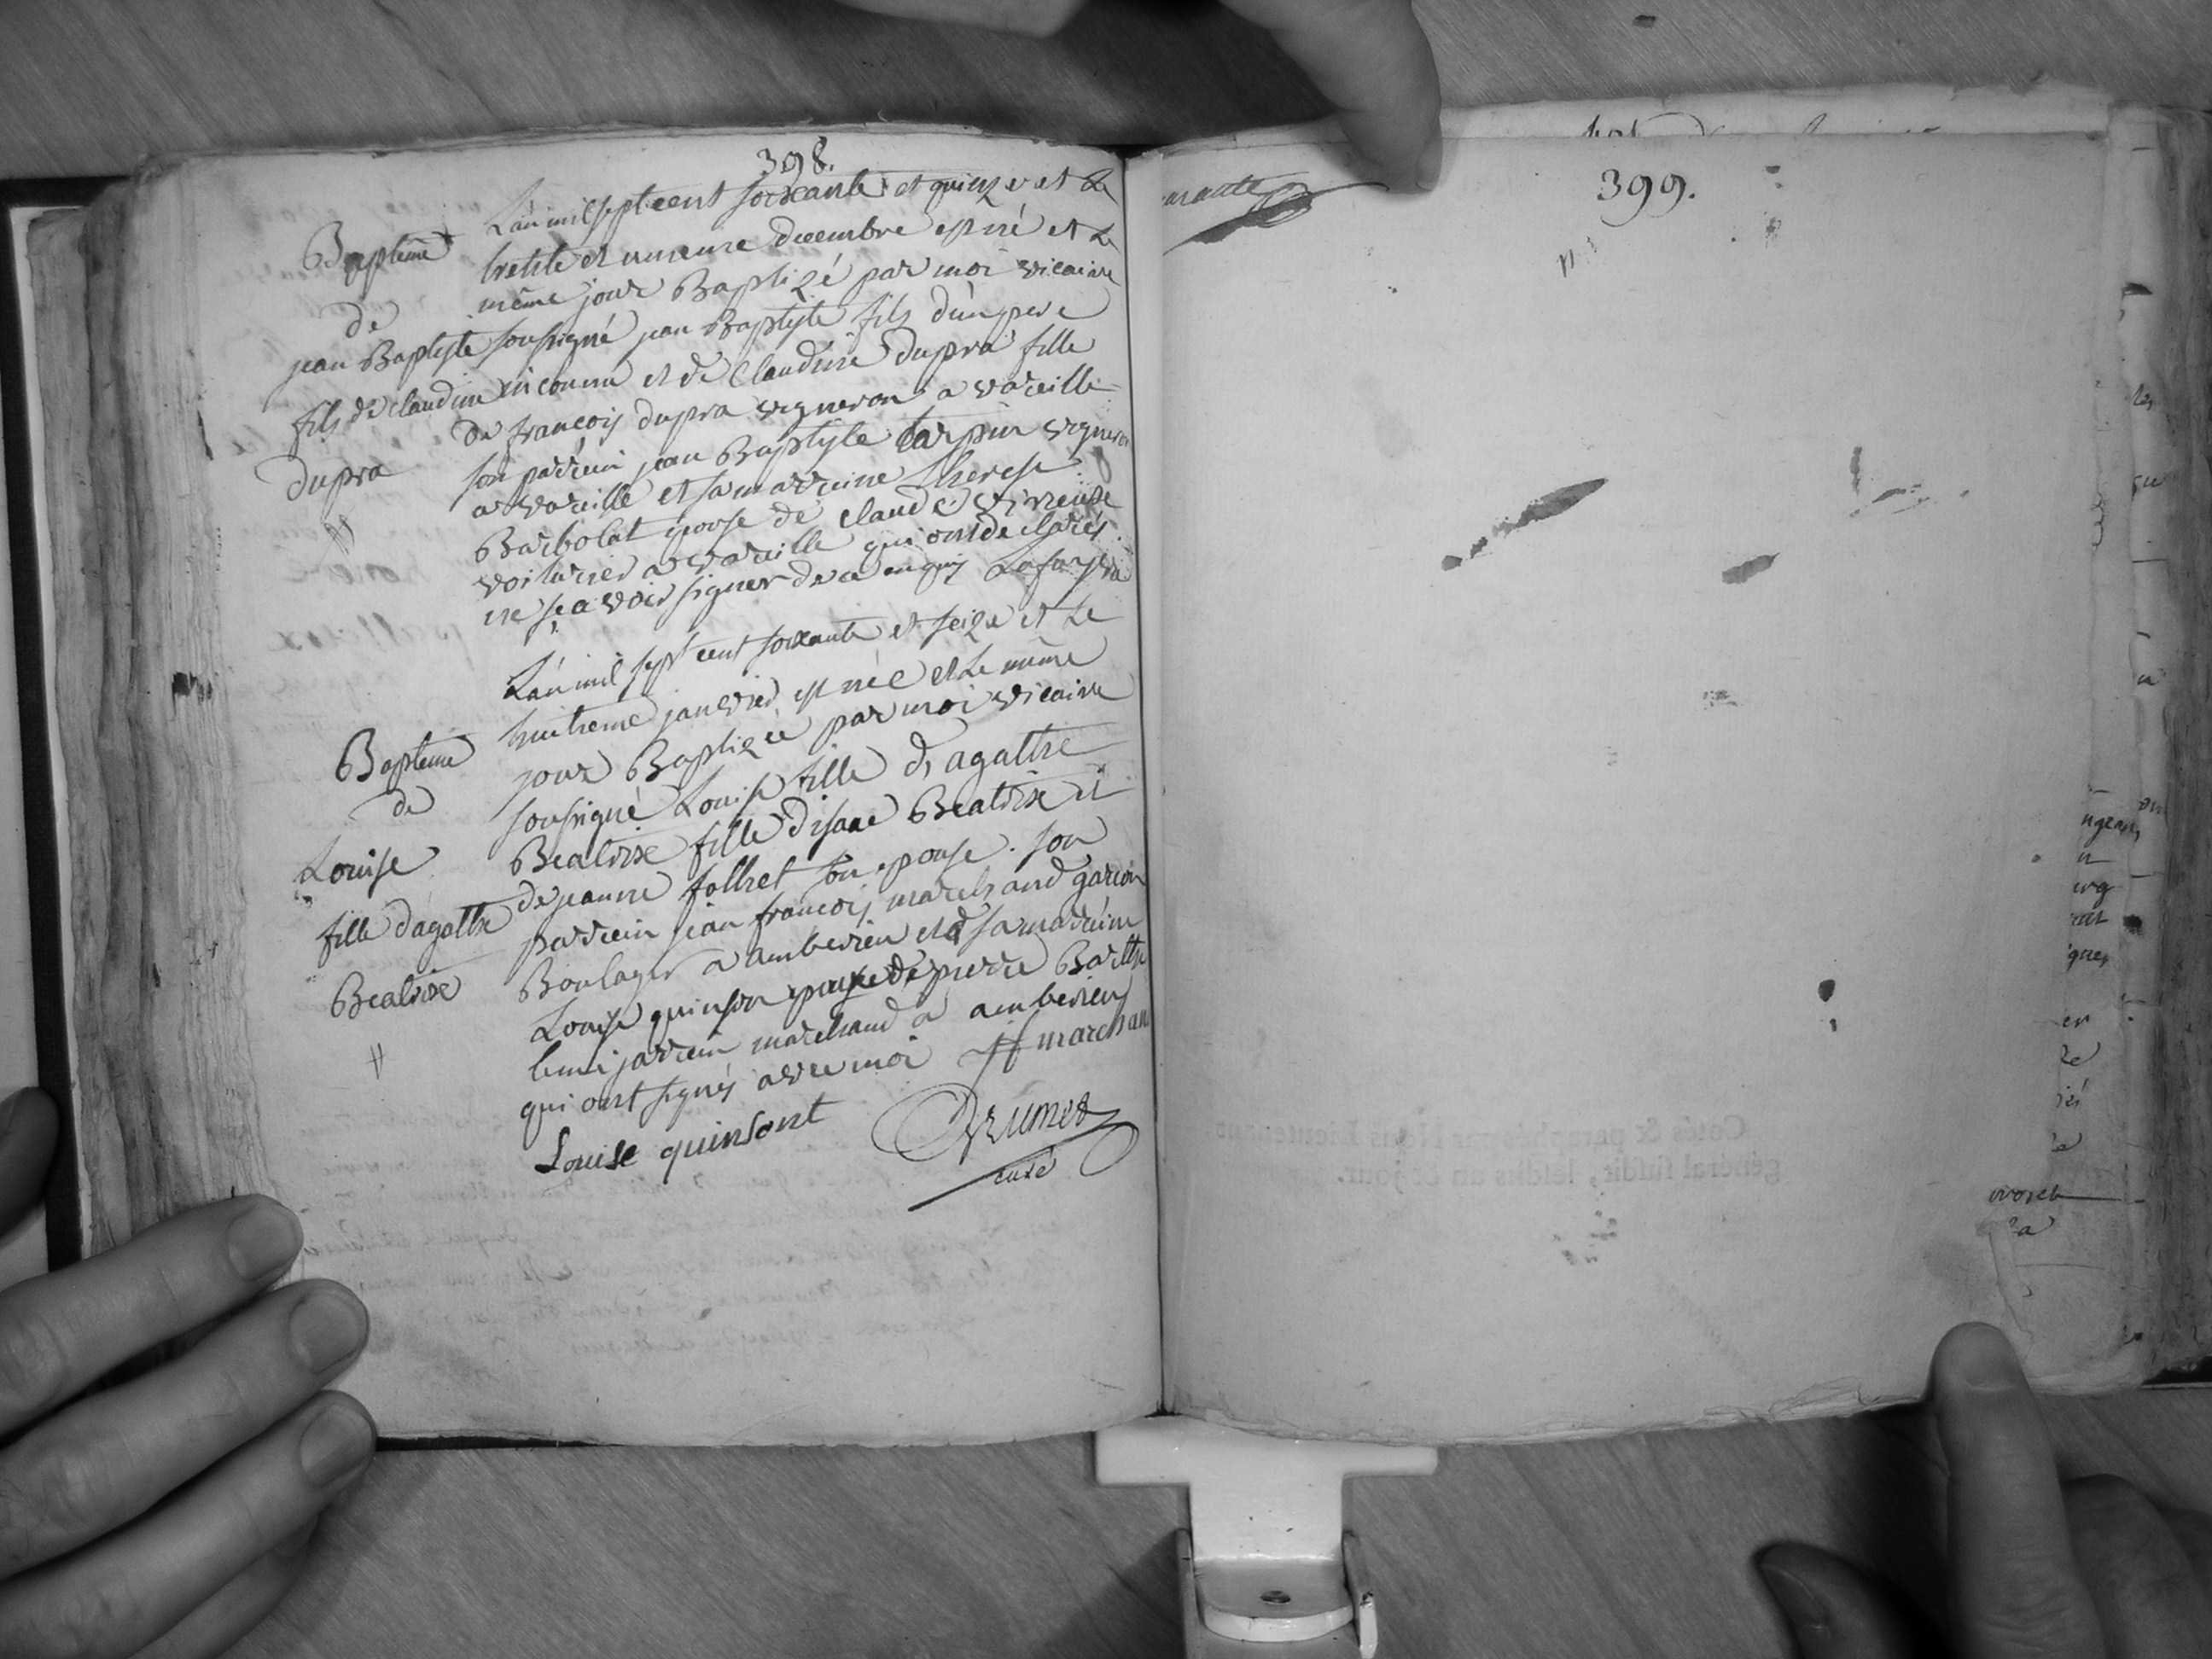 398.
Baptême
de
jean Baptiste
fils de claudine
dupra
L'an mil sept cent soixante et quinze et Le
trente et unieme decembre est né et Le
même jour Baptizé par moi vicaire
soussigné jean Baptiste fils d'un pere
inconnu et de Claudine dupra fille
de francois dupra vigneron a vareille
son parrein jean Baptiste tarpin vigneron
a vareille et sa marreine therese
Barbolat epouse de claude
voiturier a vareille qui ont declarés
ne sçavoir signer de ce enquis
Bapteme
de
Louise
fille d'agathe
Beatrix
L'an mil sept cent soixante et seize et Le
huitieme janvier est née et Le même
jour Baptizée par moi vicaire
soussigné Louise fille d'agathe
Beatrix fille d'isaac Beatrix et
de jeanne follret son epouse. son
parrein jean francois marchand garcon
Boulager a amberieu et sa marreine
Louise quinson epouse de pierre Barthe
lemi jarrein marchand a amberieu
qui ont signés avec moi jf marchan
Louise quinsont
Grumet
curé
399.
Cotés & paraphés par Nous Lieutenant
général susdit, lesdits an & jour.